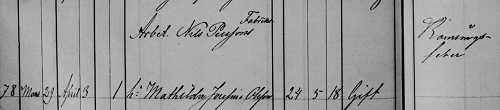 Fabriks
Arbet. Nils Perssons
78 Mars 29 April 3 1 h: Mathilda Josefina Olsson 24 5 18 Gift
Barnsängs-
feber